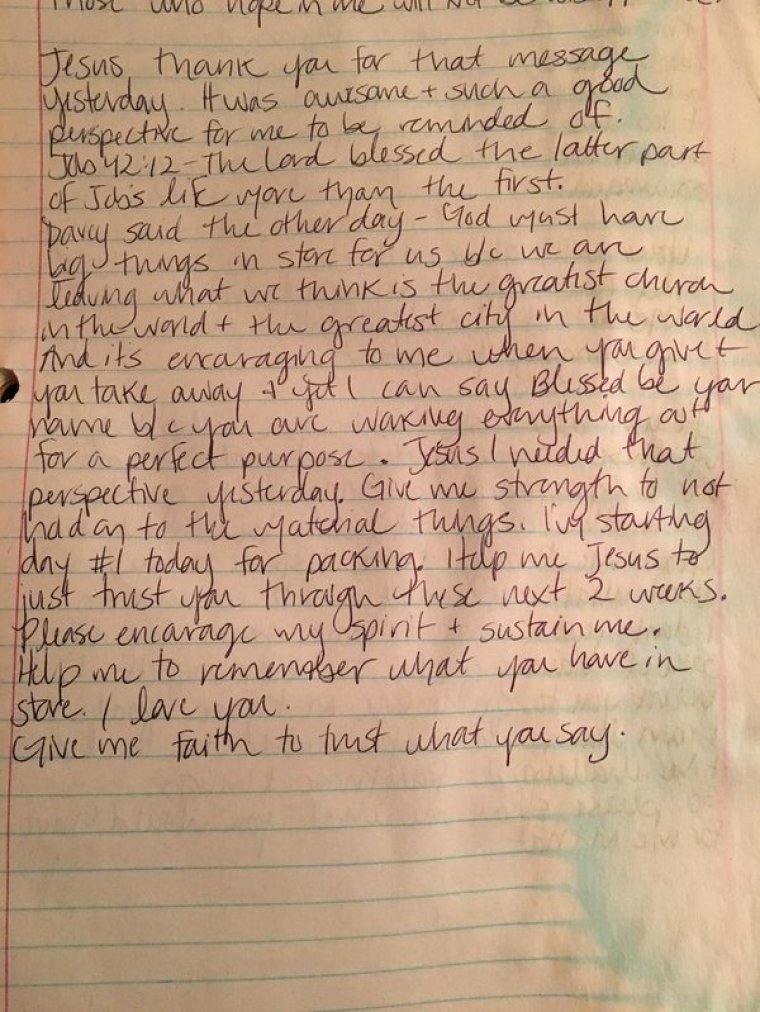 those who hope in me will not be
Jesus, thank you for that message
yesterday. It was awesome + such a good
perspective for me to be reminded of.
Job 42:12 - The Lord blessed the latter part
of Job's life more than the first.
Darcy said the other day - God must have
big things in store for us b/c we are
leaving what we think is the greatest church
in the world + the greatest city in the world
And its encouraging to me when you give +
you take away + yet I can say Blessed be your
name b/c you are working everything out
for a perfect purpose. Jesus I needed that
perspective yesterday. Give me strength to not
hold on to the material things. I'm starting
day #1 today for packing. Help me Jesus to
just trust you through these next 2 weeks.
Please encourage my spirit + sustain me.
Help me to remember what you have in
store. I love you.
Give me faith to trust what you say.